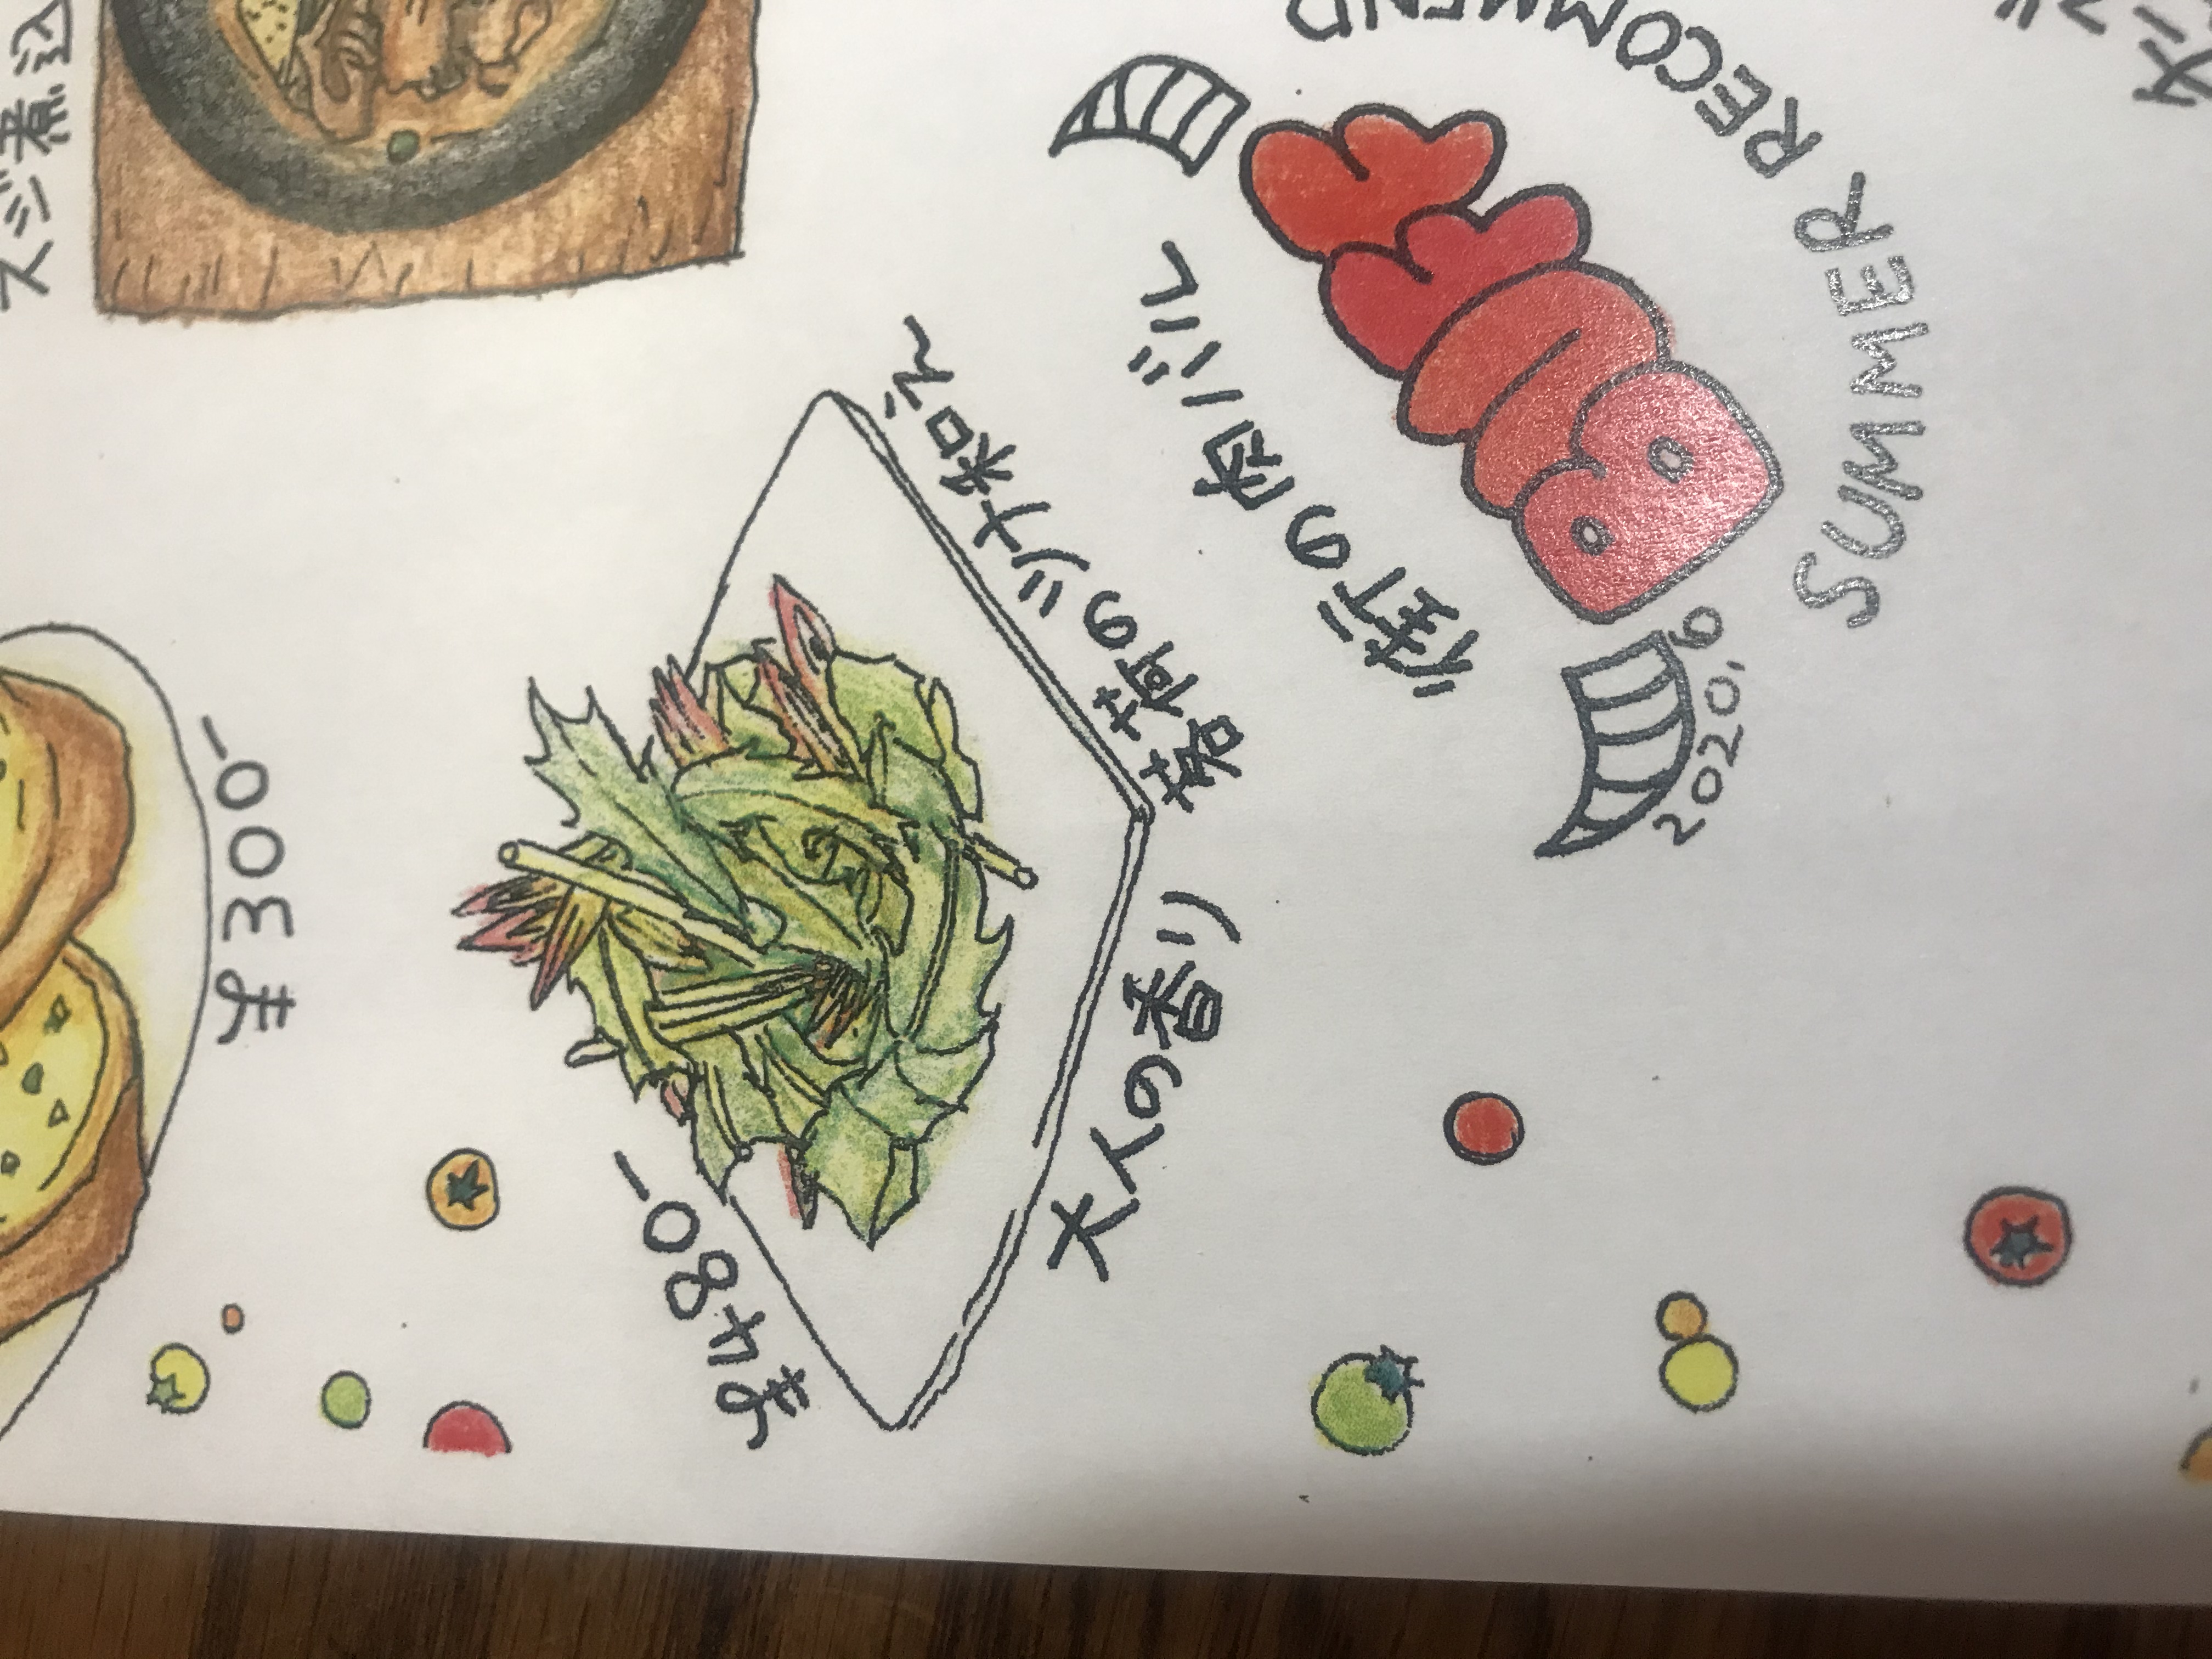 SUMMER RECOMMEND
2020,6
BUFF
街の肉バル
茗荷のツナ和え
大人の香り
¥480-
スジ煮込
¥300-